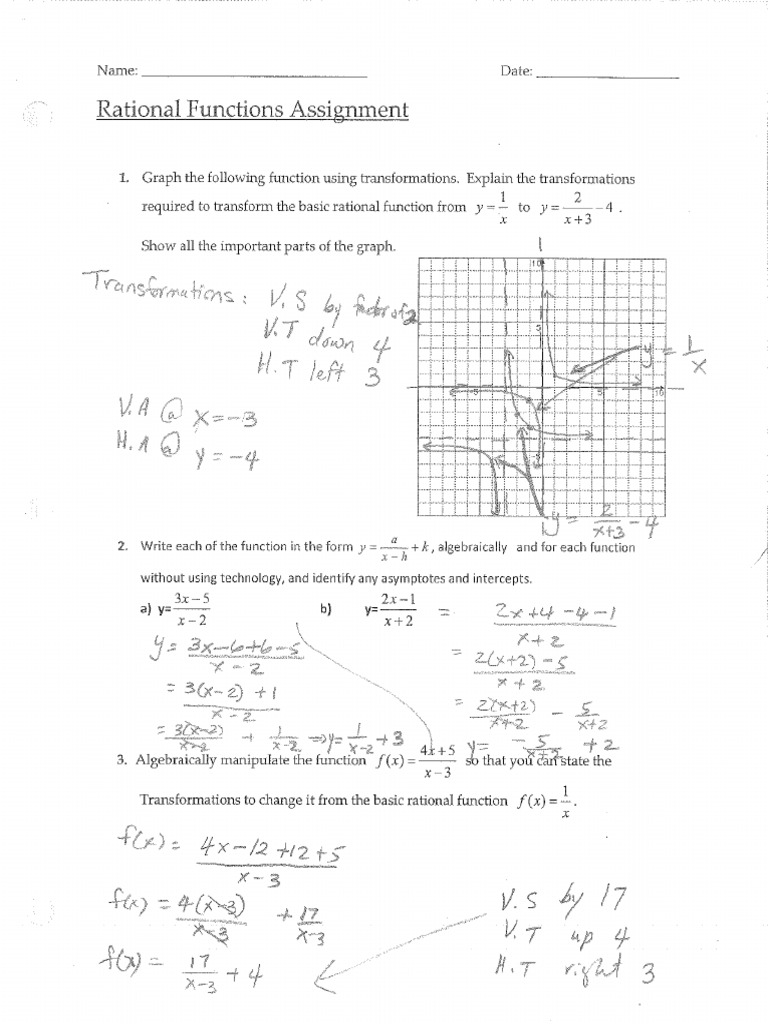 Name: ____________ Date: ____________
Rational Functions Assignment
1. Graph the following function using transformations. Explain the transformations
required to transform the basic rational function from y = 1/x to y = 2/(x+3) − 4 .
Show all the important parts of the graph.
Transformations: V.S by factor of 2
V.T down 4
H.T left 3
V.A @ x = -3
H.A @ y = -4
10
5
-5 5 10
-5
y = 1/x
y = 2/(x+3) - 4
2. Write each of the function in the form y = a/(x−h) + k, algebraically and for each function
without using technology, and identify any asymptotes and intercepts.
a) y= (3x−5)/(x−2) b) y= (2x−1)/(x+2) = (2x+4-4-1)/(x+2)
y = (3x-6+6-5)/(x-2)
= (2(x+2)-5)/(x+2)
= (3(x-2)+1)/(x-2)
= 2(x+2)/(x+2) - 5/(x+2)
= 3(x-2)/(x-2) + 1/(x-2) => y = 1/(x-2) + 3
y = -5/(x+2) + 2
3. Algebraically manipulate the function f(x) = (4x+5)/(x−3) so that you can state the
Transformations to change it from the basic rational function f(x) = 1/x .
f(x) = (4x-12+12+5)/(x-3)
f(x) = 4(x-3)/(x-3) + 17/(x-3)
f(x) = 17/(x-3) + 4
V.S by 17
V.T up 4
H.T right 3